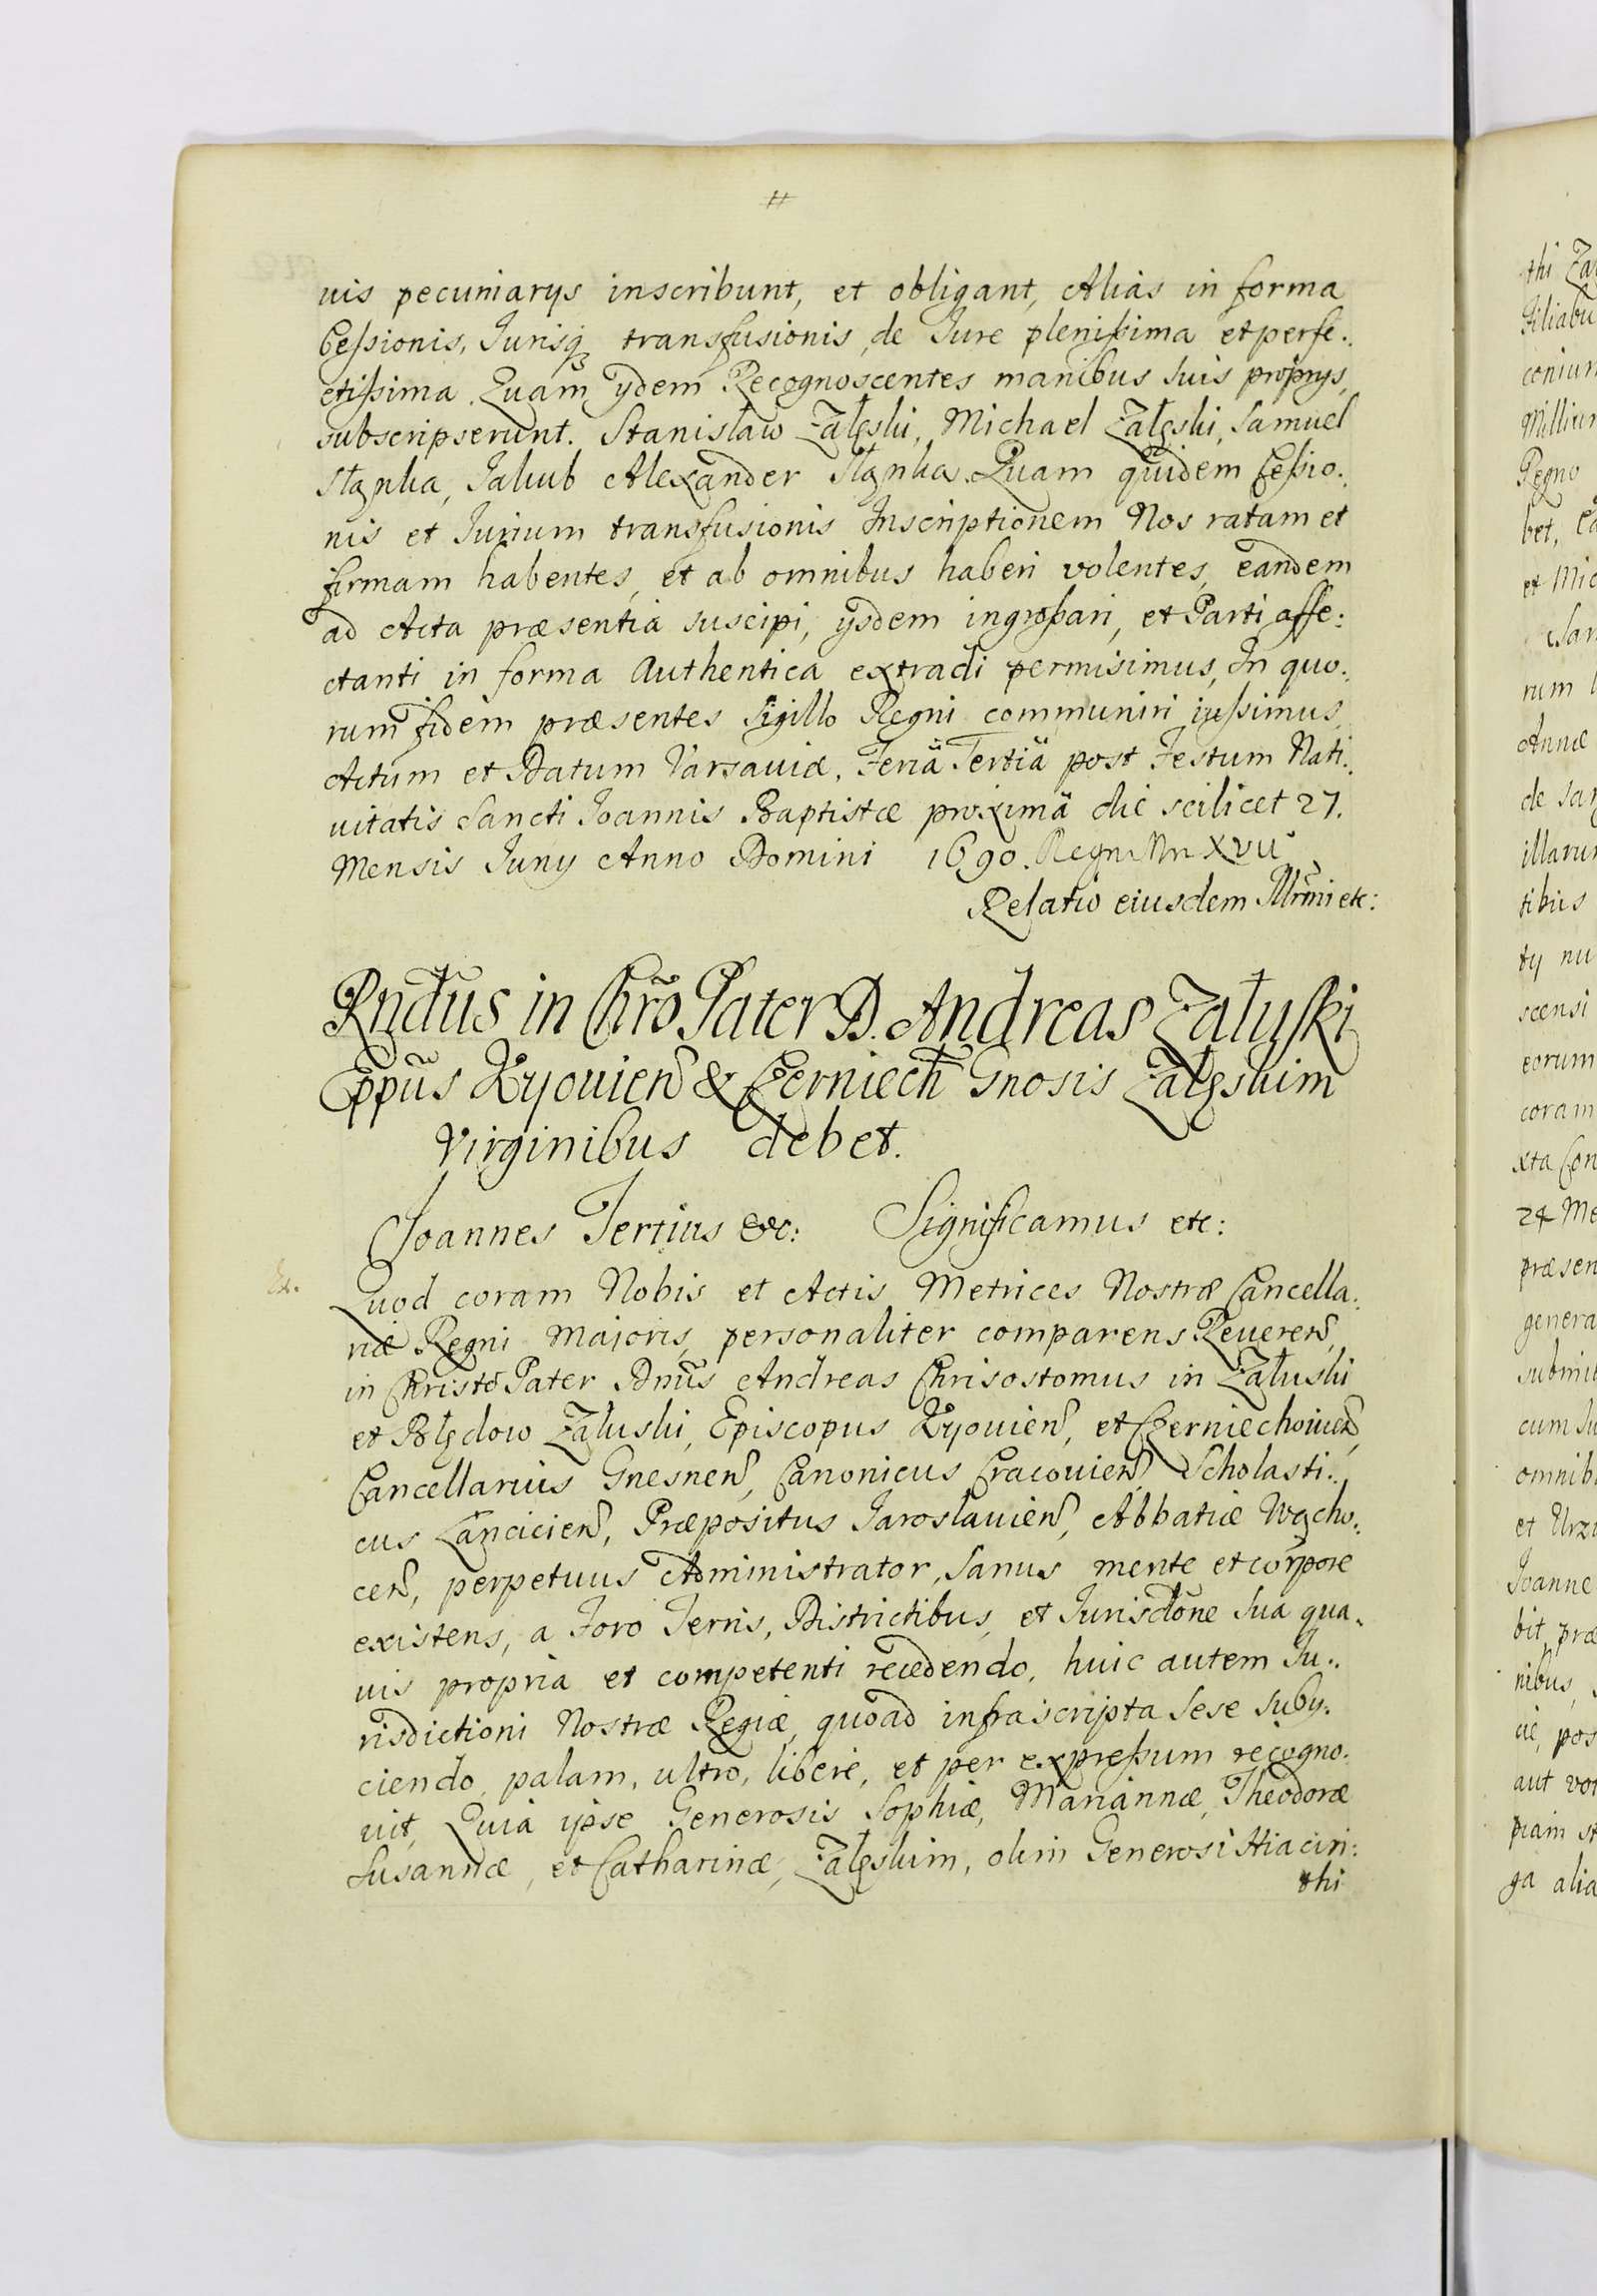 uis pecuniarys inscribunt, et obligant, Alias in forma
Cessionis, Jurisq transfusionis, de Jure plenissima et perfe:
ctissima. Quam ydem Recognoscentes manibus suis proprys,
subscripserunt. Stanisław Załęski, Michael Załęski, Samuel
Stępka, Jakub Alexander Stępka. Quam quidem Cessio:
nis et Jurium transfusionis Inscriptionem Nos ratam et
firmam habentes, et ab omnibus haberi volentes, eandem
ad Acta præsentia suscipi, ysdem ingrossari, et Parti affe:
ctanti in forma Authentica extradi permisimus, In quo:
rum fidem præsentes Sigillo Regni communiri iussimus
Actum et Datum Varsauiæ, Feriâ Tertiâ post Festum Nati:
uitatis Sancti Joannis Baptistæ proximâ die scilicet 27.
Mensis Juny Anno Domini 1690. Regni Nri XVII
Relatio eiusdem Illrmi etc:
Rndus in Chro Pater D. Andreas Załuski
Eppus Kyouien & Czerniech Gnosis Załęskim
Virginibus debet.
Joannes Tertius &c: Significamus etc:
Quod coram Nobis et Actis Metrices Nostræ Cancella:
riæ Regni Majoris, personaliter comparens Reueren,
in Christo Pater Dnus Andreas Chrisostomus in Załuski
et Błędow Załuski, Episcopus Kyouien, et Czerniechouien,
Cancellarius Gnesnen, Canonicus Cracouien, Scholasti:
cus Lancicien, Præpositus Jaroslauien, Abbatiæ Wącho:
cen, perpetuus Administrator, Sanus mente et corpore
existens, a Foro Terris, Districtibus, et Jurisdône Sua qua:
uis propria et competenti recedendo, huic autem Ju:
risdictioni Nostræ Regiæ, quoad infrascripta Sese suby:
ciendo, palam, ultro, libere, et per expressum recogno:
uit, Quia ipse Generosis Sophiæ, Mariannæ, Theodoræ
Susannæ, et Catharinæ, Załęskim, olim Generosi Hiacin:
thi
thi
Filiabu
coniun
Regno
bet,
rum
Annæ
illaru
tibus
ty nu
scensi
eorum
coram
xta Con
24 Me
præsen
genera
submit
cum Ju
omnib
Joanne
bit præ
nibus,
piam st
ga alia